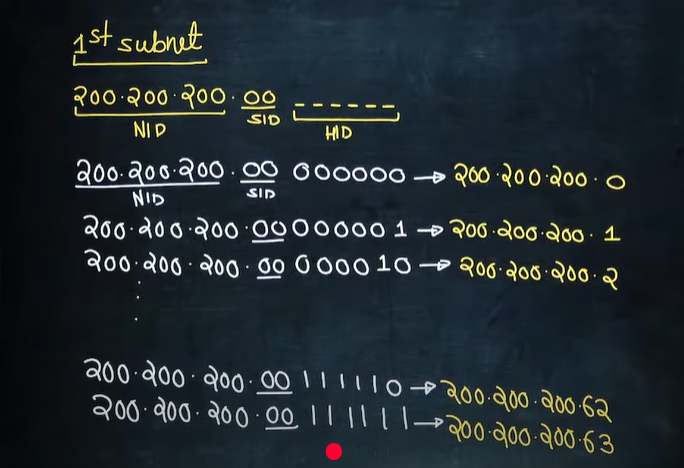 1st subnet
200.200.200.00 _ _ _ _ _ _
NID SID HID
200.200.200.00 000000 → 200.200.200.0
NID SID
200.200.200.00000001 → 200.200.200.1
200.200.200.00000010 → 200.200.200.2
200.200.200.00111110 → 200.200.200.62
200.200.200.00111111 → 200.200.200.63